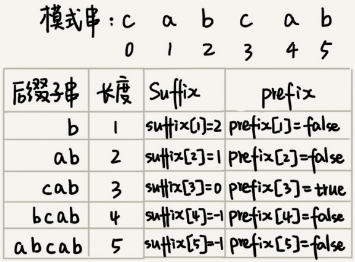 模式串：c a b c a b
0 1 2 3 4 5
后缀子串 长度 Suffix prefix
b 1 suffix[1]=2 prefix[1]=false
ab 2 suffix[2]=1 prefix[2]=false
cab 3 suffix[3]=0 prefix[3]=true
bcab 4 suffix[4]=-1 prefix[4]=false
abcab 5 suffix[5]=-1 prefix[5]=false